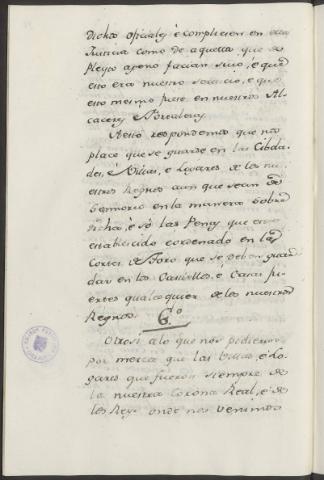 dichos oficiales è compliesen en otra
Justicia como de aquella que de
Reyno ageno facian suio, è que
esto era nuestro servicio, e que
esto mesmo fuese en nuestros Al-
caceres y Fortalezas
A esto respondemos que nos
place que se guarde en las Cibda-
des, è Villas, e Logares de los nu-
estros Regnos aun que sean de
Señorio en la manera sobre
dicha, è só las Penas que está
establescido è ordenado en las
Cortes de Toro que se deban guar-
dar en los Castillos, è Casas fu-
ertes qualesquier de los nuestros
Regnos.
6.º
Otrosi à lo que nos pidieron
por merced que las Villas, è Lo-
gares que fueron siempre de
la nuestra Corona Real, è de
los Reyes onde nos venimos